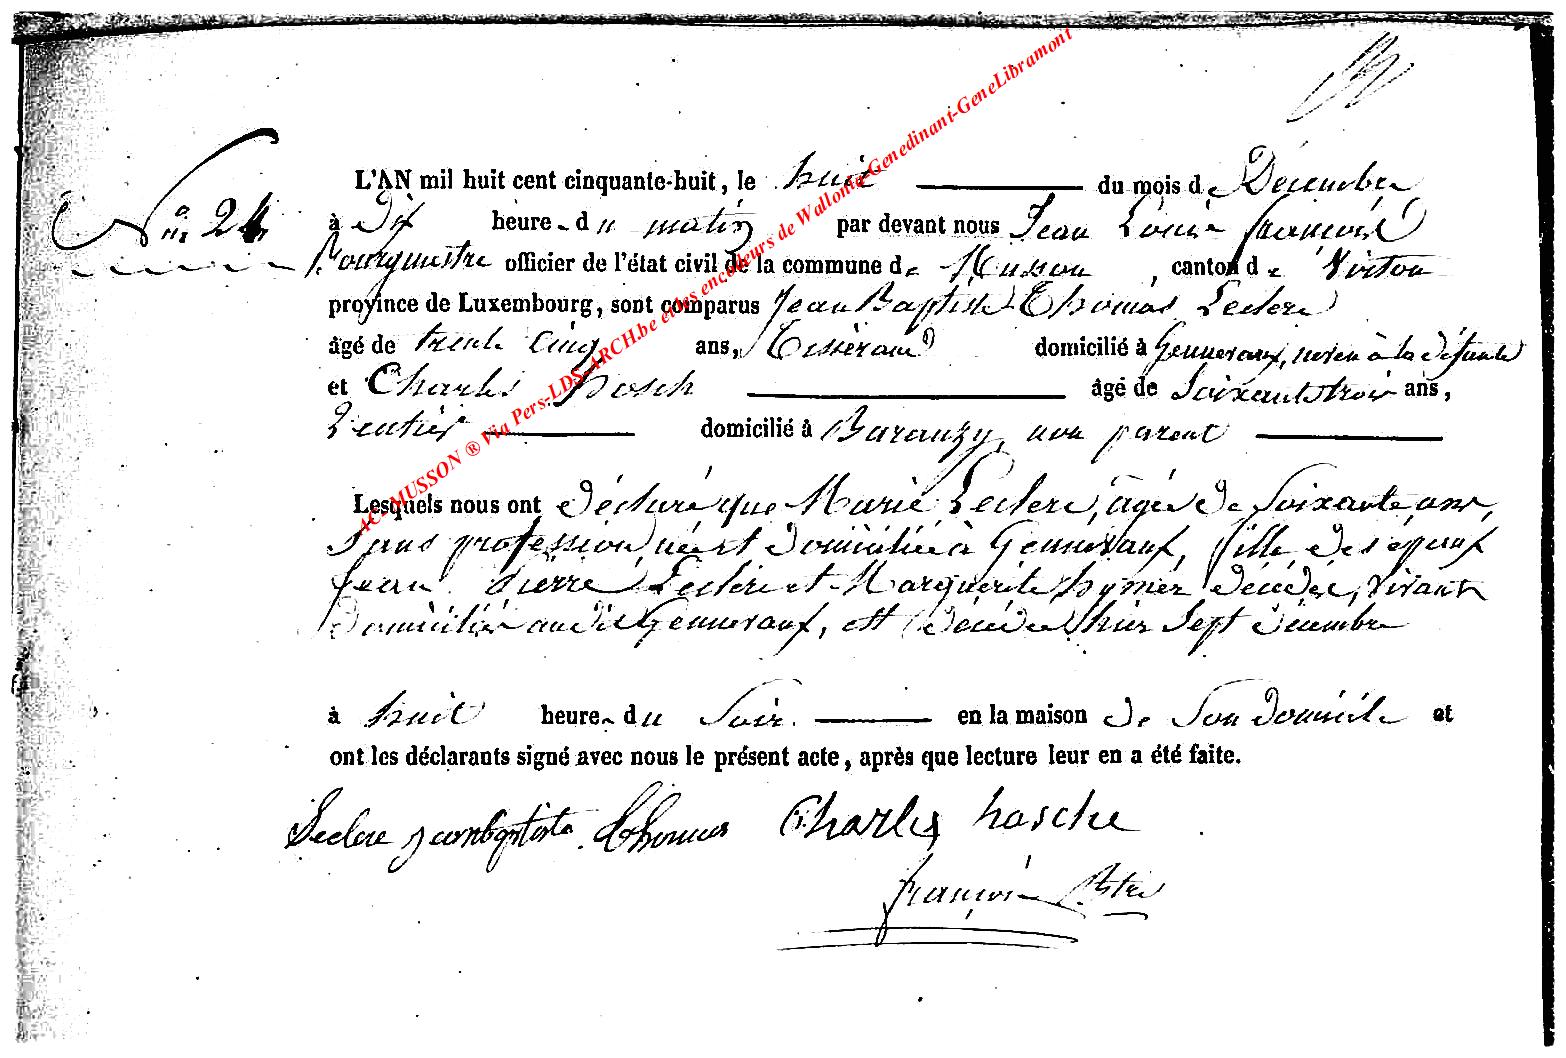 L'AN mil huit cent cinquante-huit, le huit du mois de Décembre
N° 24
à Dix heures du matin par devant nous Jean Louis françois
Bourgmestre officier de l'état civil de la commune de Musson, canton de Virton
province de Luxembourg, sont comparus Jean Baptiste Thomas Leclere
âgé de trente cinq ans, Tisserand domicilié à Gennevaux, neveu à la défunte
et Charles hosch âgé de Soixante trois ans,
Rentier domicilié à Baranzy, non parent
Lesquels nous ont déclaré que Marie Leclere, agée de Soixante ans,
Sans profession, née et domiciliée à Gennevaux, fille des époux
Jean Pierre Leclere et Marguerite hymer décédés, vivant
domiciliés au dit Gennevaux, est décédée hier Sept décembre
à huit heures du Soir en la maison de Son domicile et
ont les déclarants signé avec nous le présent acte, après que lecture leur en a été faite.
Leclere jeanbaptiste thomas Charles hasche
françois
AC-MUSSON ® Via Pers-LDS-ARCH.be et les encodeurs de Wallonia-Genedinant-GeneLibramont